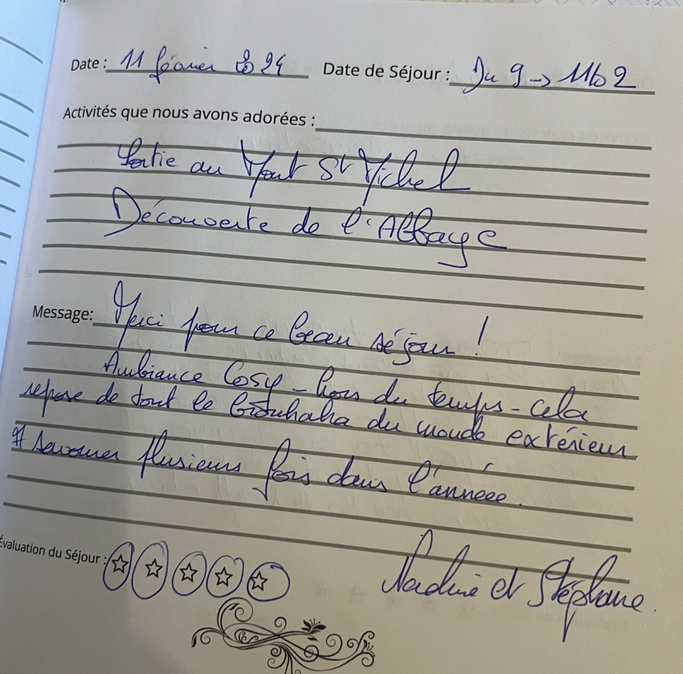 Date : 11 février 2024 Date de Séjour : Du 9 → 11/02
Activités que nous avons adorées :
Sortie au Mont St Michel
Découverte de l'Abbaye
Message: Merci pour ce beau séjour !
Ambiance Cosy - hors du temps - cela
repose de tout le brouhaha du monde extérieur
A savourer plusieurs fois dans l'année.
Évaluation du Séjour :
Nadine et Stéphane.